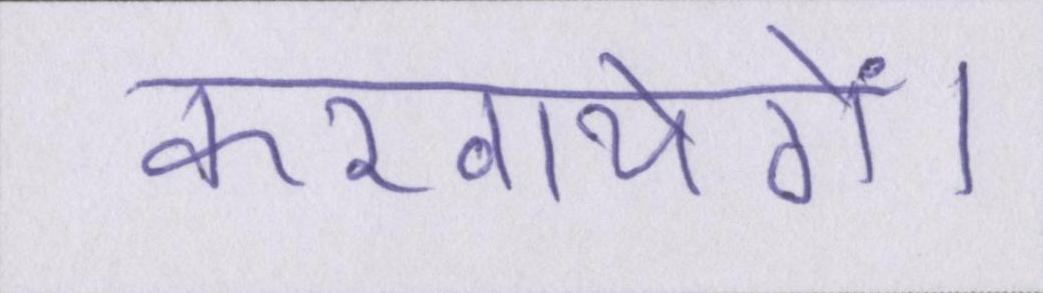 करवायेगें।